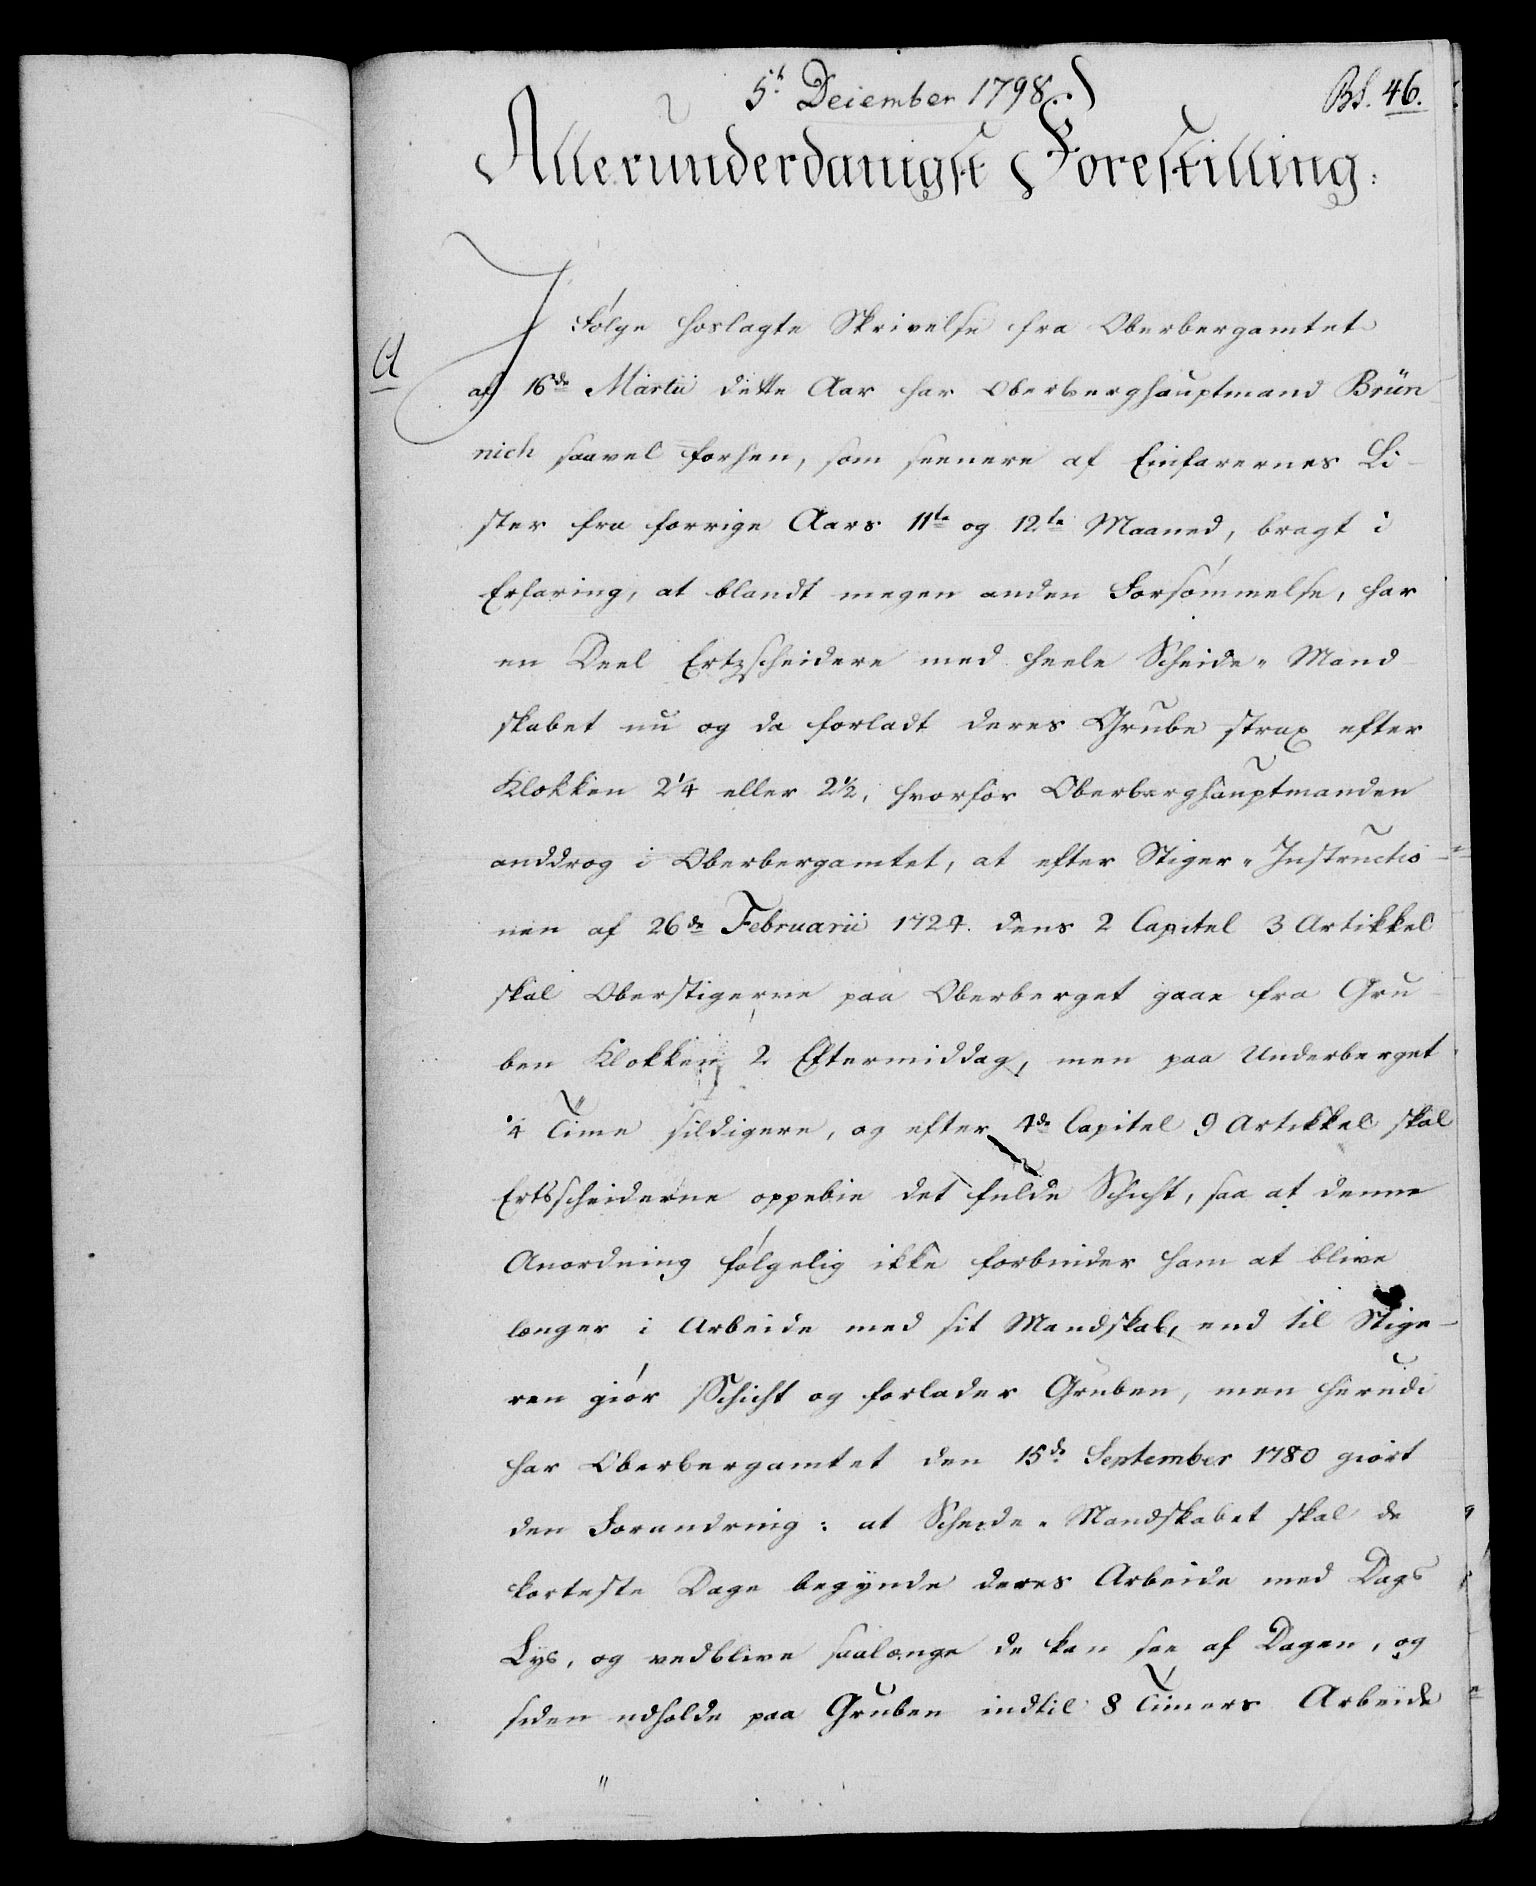 5t Deiember 1798.
Bl. 46.
Allerunderdanigst Forestilling:
I Følge hoslagte Skrivelse fra Oberbergamtet
A
af 16de Martii dette Aar har Oberberghauptmand Brün
nich saavel forhen, som senere af Einfarernes Li-
ster fra forrige Aars 11te og 12te Maaned, bragt i
Erfaring, at blandt megen anden Forsømmelse, har
en Deel Ertzscheidere med heele Scheide-Mand-
skabet nu og da forladt deres Grube strax efter
Klokken 2¼ eller 2½, hvorfor Oberberghauptmanden
anddrog i Oberbergamtet, at efter Stiger-Instructio-
nen af 26de Februarii 1724. dens 2 Capitel 3 Artikkel
skal Oberstigerne paa Oberberget gaae fra Gru-
ben Klokken 2 Eftermiddag, men paa Underberget
¼ Time sildigere, og efter 4de Capitel 9 Artikkel skal
Ertsscheiderne oppebie det fulde Schicht, saa at denne
Anordning følgelig ikke forbinder ham at blive
længer i Arbeide med sit Mandskab, end til Stige-
ren giør Schicht og forlader Gruben, men herudi
har Oberbergamtet den 15de September 1780 giort
den Forandring: at Scheide-Mandskabet skal de
korteste Dage begynde deres Arbeide med Dags
Lys, og vedblive saalænge de kan see af Dagen, og
siden udholde paa Gruben indtil 8 Timers Arbeide
"